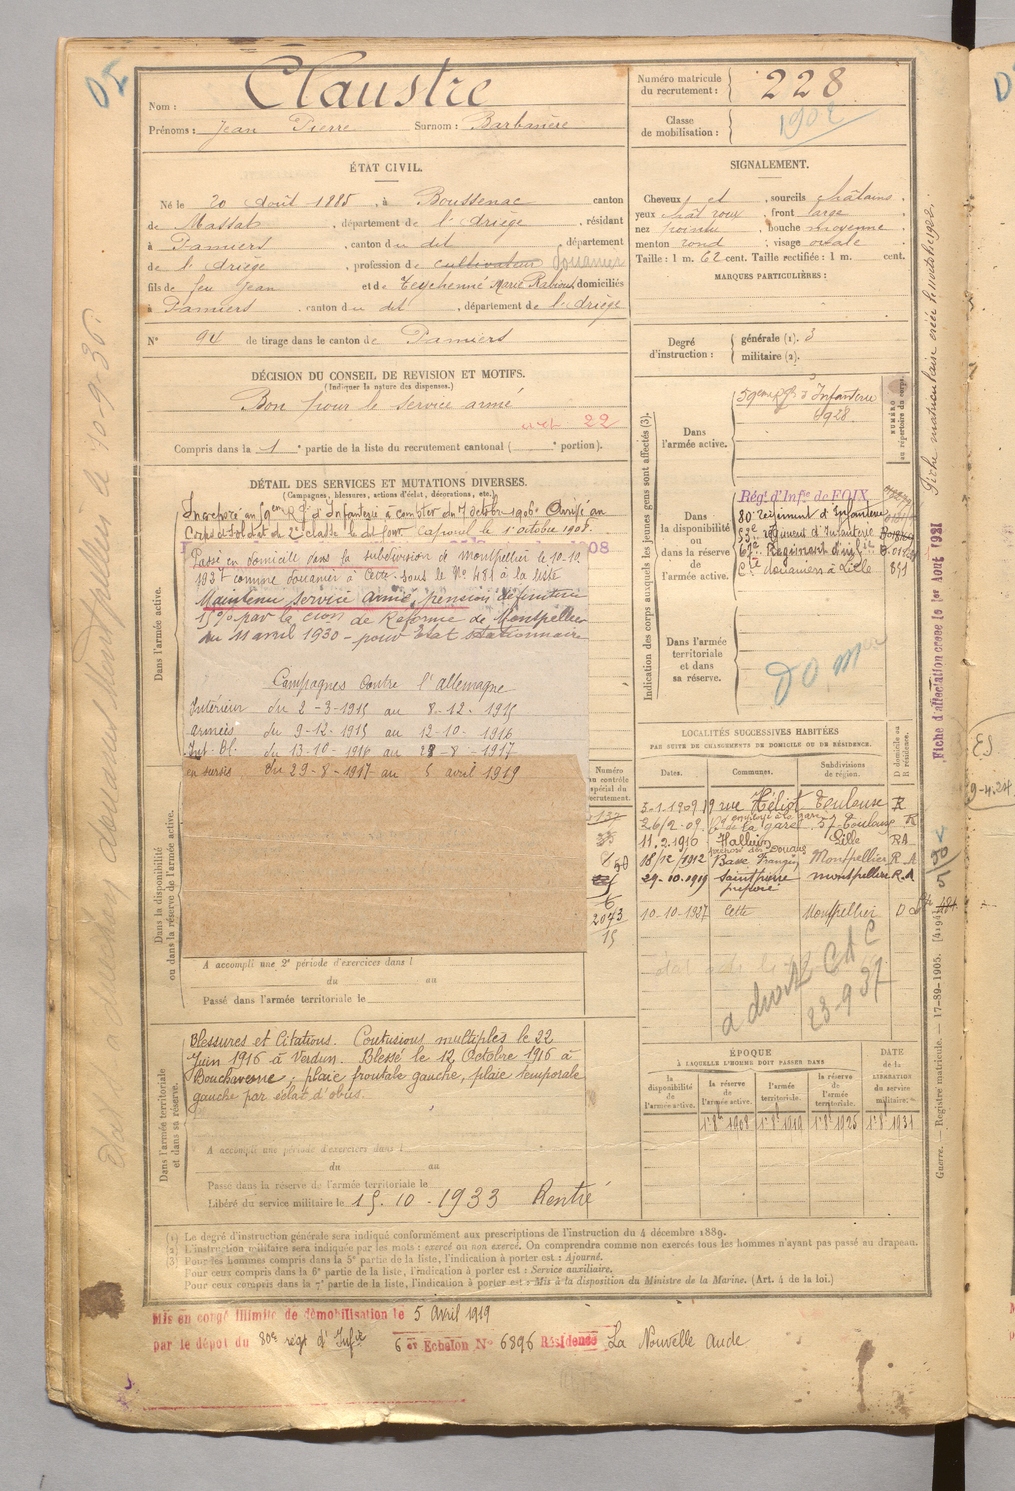 Nom : Claustre
Prénoms : Jean Pierre Surnom : Barbarière
Numéro matricule du recrutement : 228
Classe de mobilisation : 1902
ÉTAT CIVIL.
Né le 20 Août 1885, à Boussenac canton
de Massat, département de l'Ariège, résidant
à Pamiers, canton du dit, département
de l'Ariège, profession de cultivateur douanier
fils de feu Jean et de Teychenné Marie domiciliés
à Pamiers canton du dit, département de l'Ariège
N° 94 de tirage dans le canton de Pamiers
SIGNALEMENT.
Cheveux et sourcils châtains
yeux chât roux, front large
nez pointu, bouche moyenne
menton rond ; visage ovale
Taille : 1 m. 62 cent. Taille rectifiée : 1 m. cent.
MARQUES PARTICULIÈRES :
Degré d'instruction : générale (1). 3
militaire (2).
DÉCISION DU CONSEIL DE REVISION ET MOTIFS.
(Indiquer la nature des dispenses.)
Bon pour le service armé
22
Compris dans la 1 e partie de la liste du recrutement cantonal ( e portion).
DÉTAIL DES SERVICES ET MUTATIONS DIVERSES.
(Campagnes, blessures, actions d'éclat, décorations, etc.)
Dans l'armée active.
Incorporé au 59eme Rgt d'Infanterie à compter du 7 octobre 1906. Arrivé au
Corps et soldat de 2e classe le dit jour. Caporal le 1er octobre 1908.
Passé en domicile dans la subdivision de Montpellier le 10.10.
1937 comme douanier à Cette sous le N° 481 à la liste
Maintenu service armé, pension définitive
15% par la Cion de Réforme de Montpellier
du 11 avril 1930 - pour Etat stationnaire
Campagnes contre l'Allemagne
Intérieur du 2-3-1915 au 8-12-1915
armées du 9-12-1915 au 12-10-1916
Int. Bl. du 13-10-1916 au 28-8-1917
en sursis du 29-8-1917 au 5 avril 1919
Dans la disponibilité ou dans la réserve de l'armée active.
A accompli une 2e période d'exercices dans l
du au
Passé dans l'armée territoriale le
Dans l'armée territoriale et dans sa réserve.
Blessures et Citations. Contusions multiples le 22
Juin 1916 à Verdun. Blessé le 12 Octobre 1916 à
Bouchavesne ; plaie frontale gauche, plaie temporale
gauche par éclat d'obus.
A accompli une période d'exercices dans l
du au
Passé dans la réserve de l'armée territoriale le
Libéré du service militaire le 15.10-1933 Rentré
Indication des corps auxquels les jeunes gens sont affectés (3).
NUMÉRO au répertoire du corps.
Dans l'armée active.
59eme Rgt d'Infanterie
Dans la disponibilité ou dans la réserve de l'armée active.
Régt d'Infie de FOIX
80e Régiment d'Infanterie
53e régiment d'Infanterie
Cie douaniers à Lille 891
Dans l'armée territoriale et dans sa réserve.
LOCALITÉS SUCCESSIVES HABITÉES
PAR SUITE DE CHANGEMENTS DE DOMICILE OU DE RÉSIDENCE.
Numéro au contrôle spécial du recrutement.
Dates. Communes. Subdivisions de région. D domicile ou R résidence.
3-1-1909 19 rue Héliot Toulouse R
26/2-09 Bd de la gare 57 Toulouse R
11.2.1910 Halluin Lille RA
18/12/1912 Montpellier R.A
29-10-1919 Montpellier R.A
10-10-1937 Cette Montpellier D
2073
15
23-9 37
ÉPOQUE
À LAQUELLE L'HOMME DOIT PASSER DANS
la disponibilité de l'armée active. la réserve de l'armée active. l'armée territoriale. la réserve de l'armée territoriale.
DATE de la LIBÉRATION du service militaire.
1er 8b 1908 1er 8b 1919 1er 8b 1925 1er 8b 1931
(1) Le degré d'instruction générale sera indiqué conformément aux prescriptions de l'instruction du 4 décembre 1889.
(2) L'instruction militaire sera indiquée par les mots : exercé ou non exercé. On comprendra comme non exercés tous les hommes n'ayant pas passé au drapeau.
(3) Pour les hommes compris dans la 5e partie de la liste, l'indication à porter est : Ajourné.
Pour ceux compris dans la 6e partie de la liste, l'indication à porter est : Service auxiliaire.
Pour ceux compris dans la 7e partie de la liste, l'indication à porter est : Mis à la disposition du Ministre de la Marine. (Art. 4 de la loi.)
Mis en congé illimité de démobilisation le 5 Avril 1919
par le dépôt du 80e regt d'Infie 6 er Echelon N° 6896 Résidence La Nouvelle Aude
Fiche d'affectation créée le 1er Aout 1931
Guerre. — Registre matricule. — 17-89-1905. [4194]
9-4.24